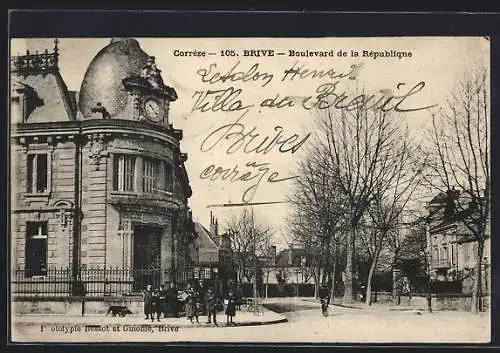 Corrèze — 105. BRIVE — Boulevard de la République
Henri
Villa du Breuil
Brives
corrèze
Phototypie Bessot et Guionie, Brive